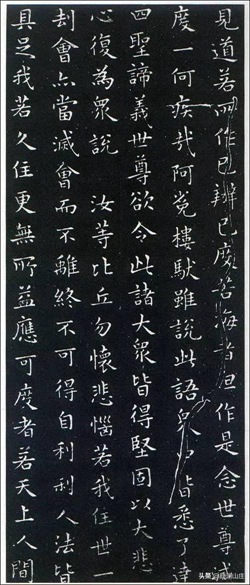 見道若所作已辦已度苦海者但作是念世尊滅
度一何疾哉阿㝹樓馱雖說此語眾中皆悉了達
四聖諦義世尊欲令此諸大眾皆得堅固以大悲
心復為眾說 汝等比丘勿懷悲惱若我住世一
刦會亦當滅會而不離終不可得自利利人法皆
具足我若久住更無所益應可度者若天上人間
头条